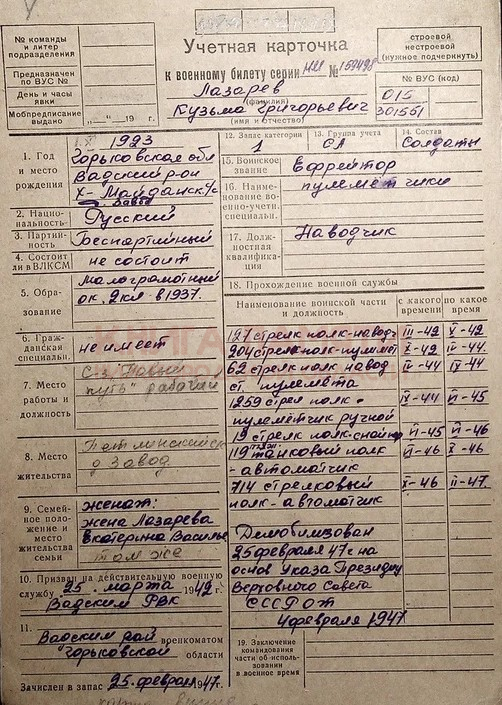 № команды
и литер
подразделения
Предназначен
по ВУС №
День и часы
явки
Мобпредписание
выдано „__“ 19 г.
Учетная карточка
к военному билету серии НИ № 159498
Лазарев
(фамилия)
Кузьма Григорьевич
(имя и отчество)
строевой
нестроевой
(нужное подчеркнуть)
№ ВУС (код)
015
301551
1. Год
и место
рождения
1923
Горьковская обл
Вадский р-он
Х-Майданск. с/с
2. Нацио-
нальность
Русский
3. Партий-
ность
Беспартийный
4. Состоит
ли в ВЛКСМ
не состоит
5. Обра-
зование
Малограмотный
ок. 2 кл в 1937.
6. Гра-
жданская
специальн.
не имеет
7. Место
работы и
должность
путь" рабочий
8. Место
жительства
д Завод
9. Семей-
ное по-
ложение и
место
жительства
семьи
женат:
жена Лазарева
Екатерина Василье
там же
10. Призван на действительную военную
службу 25 марта 1942 г.
Вадским РВК
11. Вадским рай военкоматом
Горьковской области
Зачислен в запас 25 февраля 1947 г.
12. Запас категории
1
13. Группа учета
СА
14. Состав
Солдаты
15. Воинское
звание
Ефрейтор
16. Наиме-
нование
военно-учетн.
специальн.
пулеметчики
17. Долж-
ностная
квалифика-
ция
Наводчик
18. Прохождение военной службы
Наименование воинской части
и должность
с какого
времени
по какое
время
127 стрелк полк-навод. III-42 V-42
904 стрелк полк-пулемет V-42 II-44
62 стрелк полк навод II-44 IV-44
ст пулемета
1259 стрел полк - IX-44 V-45
пулеметчик ручной
19 стрелк полк-снайпер VI-45 VI-46
119 танковый полк VI-46 X-46
- автоматчик
714 стрелковый X-46 II-47.
полк - автоматчик
Демобилизован
25 февраля 47 г на
основ Указа Президиу
Верховного Совета
СССР от
4 февраля 1947
19. Заключение
командования
части об исполь-
зовании
в военное время